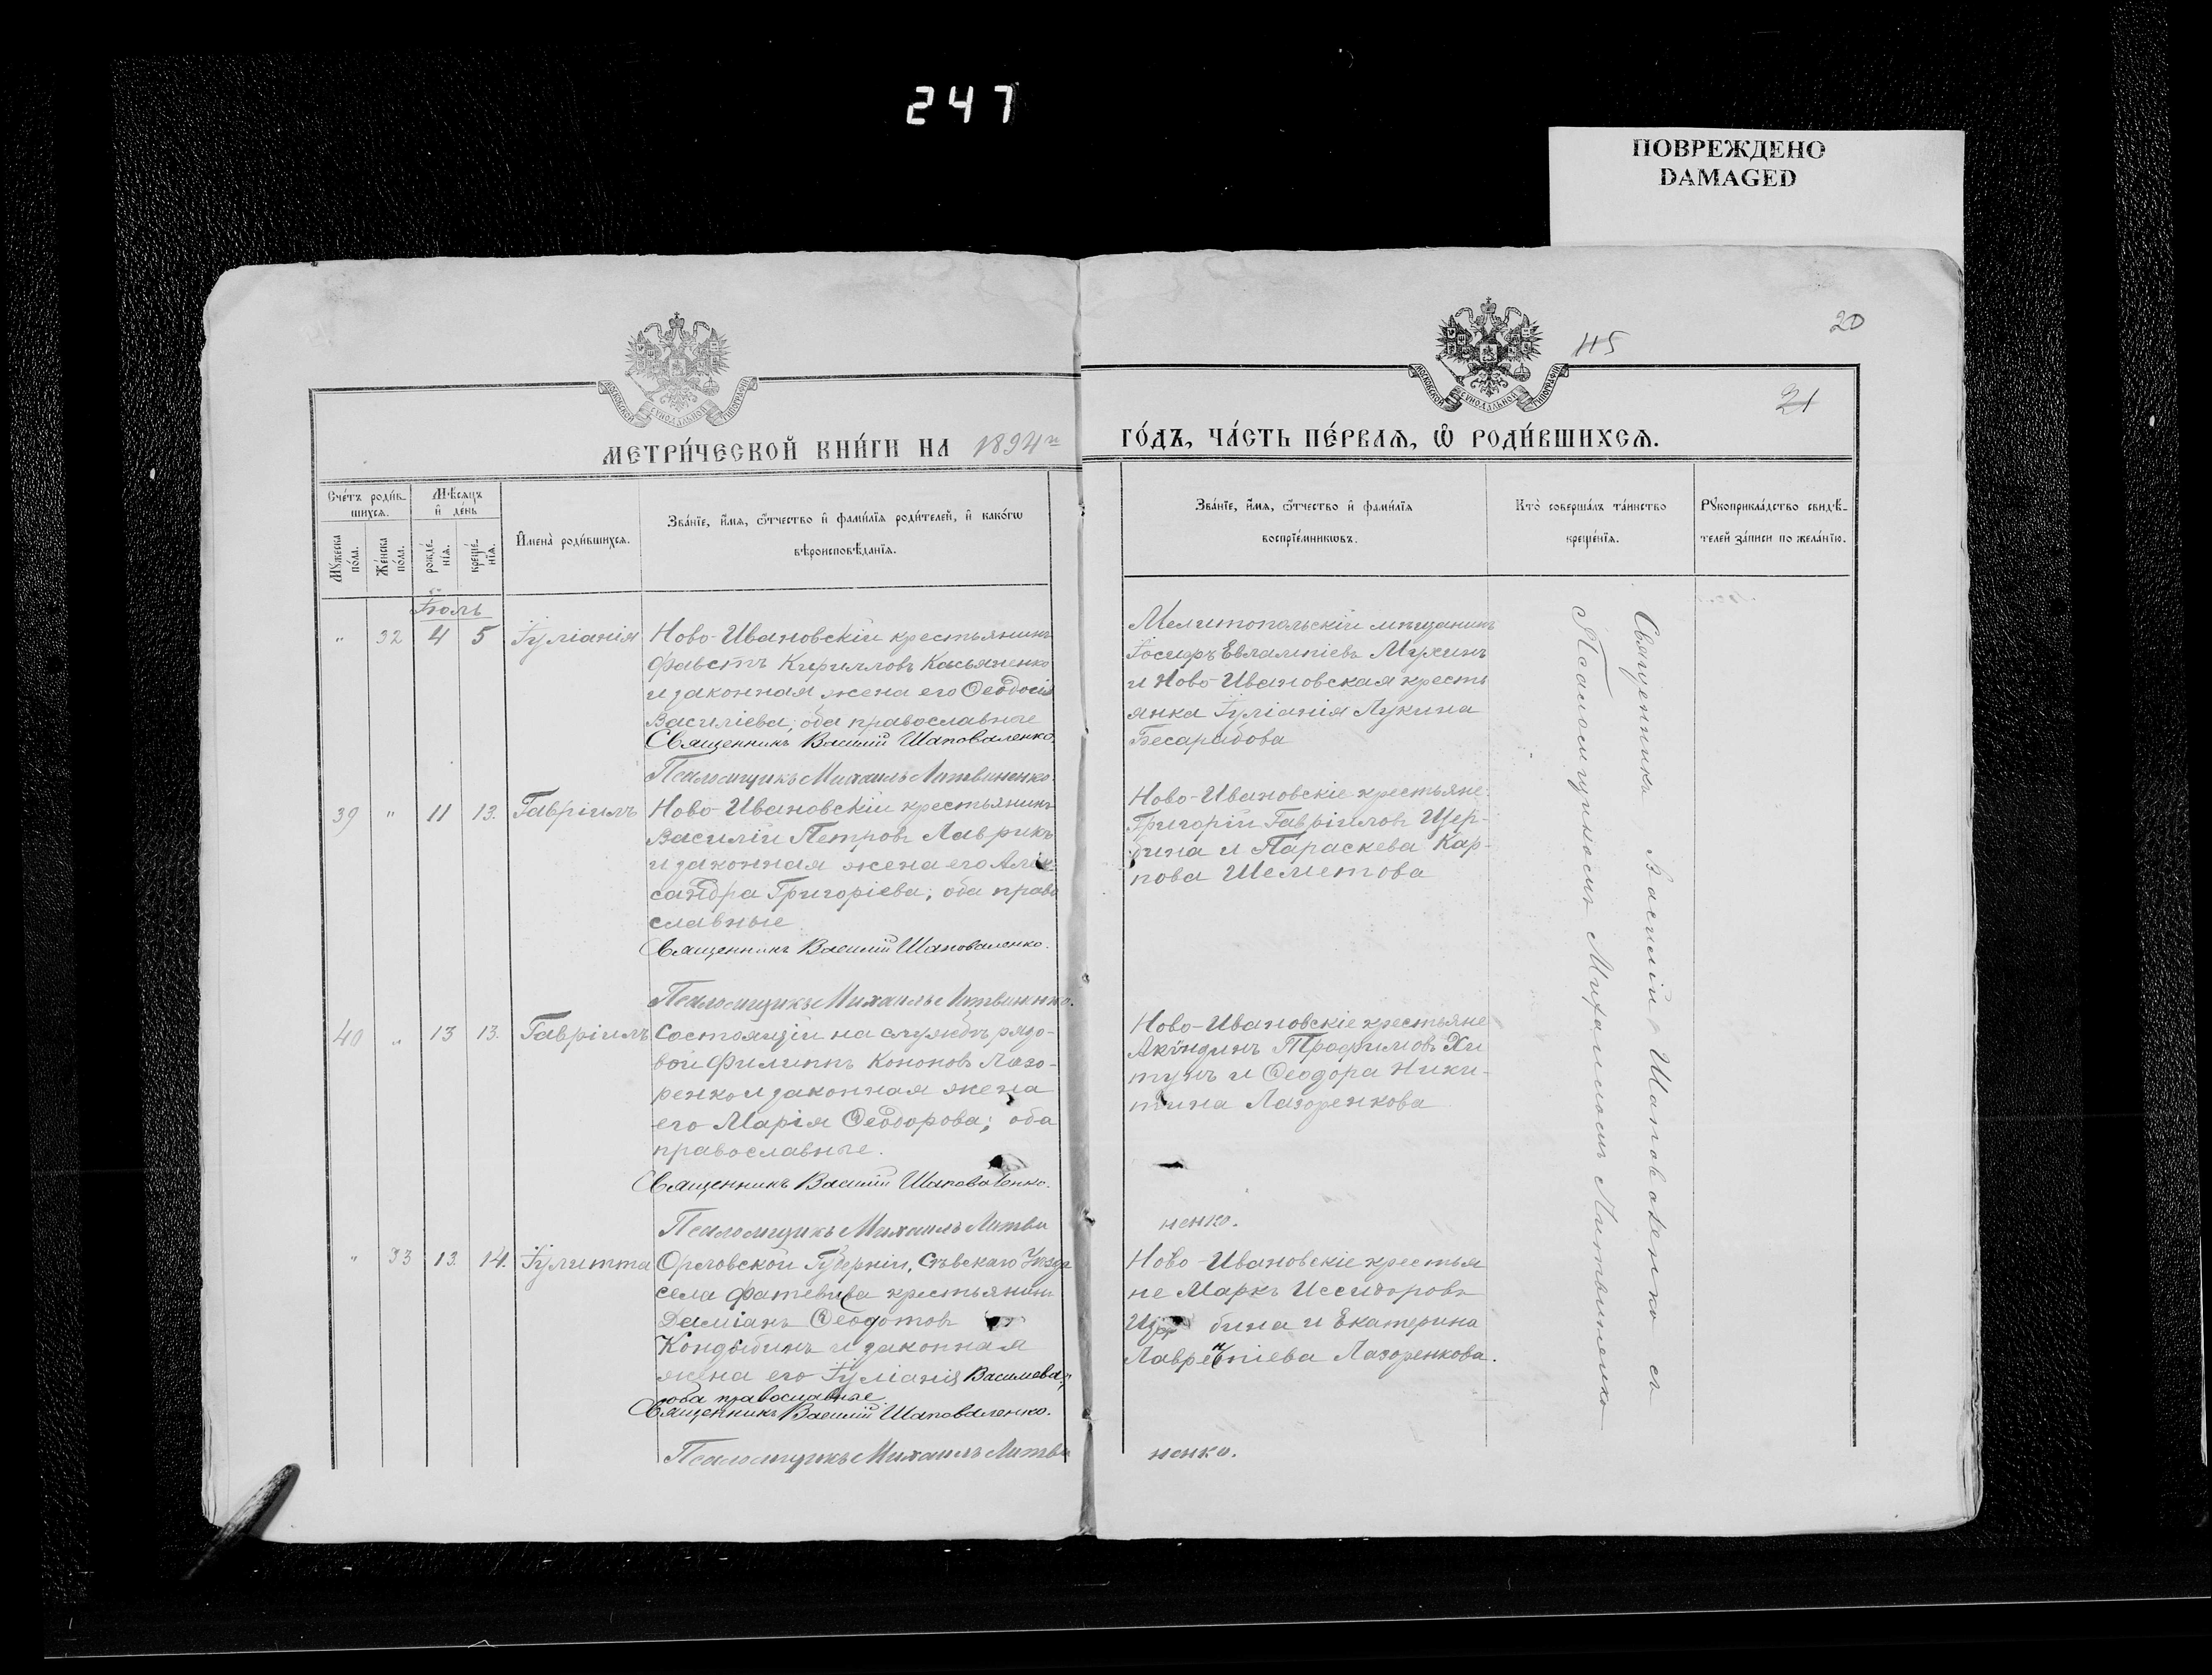 247
ПОВРЕЖДЕНО
DAMAGED
115
20
21
МЕТРИ́ЧЕСКОЙ КНИ́ГИ НА 1894 г.
ГО́ДЪ, ЧА́СТЬ ПЕ́РВАѦ, Ѿ РОДИ́ВШИХСѦ.
Сче́тъ роди́в-
шихсѧ.
Мѣ́сѧцъ
и҆ де́нь
Мꙋ́жеска
по́ла.
Же́нска
по́ла.
рожде́-
нїѧ.
креще́-
нїѧ.
И҆мена̀ роди́вшихсѧ.
Зва́нїе, и҆́мѧ, ѻ҆́тчество и҆ фами́лїѧ роди́телей, и҆ како́гѡ
вѣроисповѣ́данїѧ.
Зва́нїе, и҆́мѧ, ѻ҆́тчество и҆ фами́лїѧ
воспрїе́мникѡвъ.
Кто̀ соверша́лъ та́инство
креще́нїѧ.
Рꙋкоприкла́дство свидѣ́-
телей за́писи по жела́нїю.
Іюль
" 32 4 5 Іуліанія
Ново-Ивановскій крестьянинъ
Фавстъ Кирилловъ Касьяненко
и законная жена его Ѳеодосія
Василіева; оба православные
Священникъ Василій Шаповаленко.
Псаломщикъ Михаилъ Литвиненко.
Мелитопольскій мѣщанинъ
Іосифъ Евлампіевъ Мухинъ
и Ново-Ивановская кресть
янка Іуліанія Лукина
Бесарабова
39 " 11 13. Гавріилъ
Ново-Ивановскій крестьянинъ
Василій Петровъ Лаврикъ
и законная жена его Алек-
сандра Григоріева; оба право
славные
Священникъ Василій Шаповаленко.
Псаломщикъ Михаилъ Литвиненко.
Ново-Ивановскіе крестьяне
Григорій Гавріиловъ Щер-
бина и Параскева Кар-
пова Шеметова
40 " 13 13. Гавріилъ
Состоящій на службѣ рядо-
вой Филиппъ Кононовъ Лазо-
ренко и законная жена
его Марія Ѳеодорова; оба
православные.
Священникъ Василій Шаповаленко.
Псаломщикъ Михаилъ Литви
ненко.
Ново-Ивановскіе крестьяне
Акѵндинъ Трофимовъ Хи
тунъ и Ѳеодора Ники-
тина Лазоренкова
" 33 13. 14. Іулитта
Орловской Губерніи, Сѣвскаго Уѣзда
села крестьянинъ
Даміанъ Ѳеодотовъ
Кондыбинъ и законная
жена его Іуліанія Василіева;
оба православные
Священникъ Василій Шаповаленко.
Псаломщикъ Михаилъ Литви
ненко.
Ново-Ивановскіе крестья
не Маркъ Иссидоровъ
Щер бина и Екатерина
Лаврентіева Лазоренкова.
Священникъ Василій Шаповаленко съ
Псаломщикомъ Михаиломъ Литвиненко